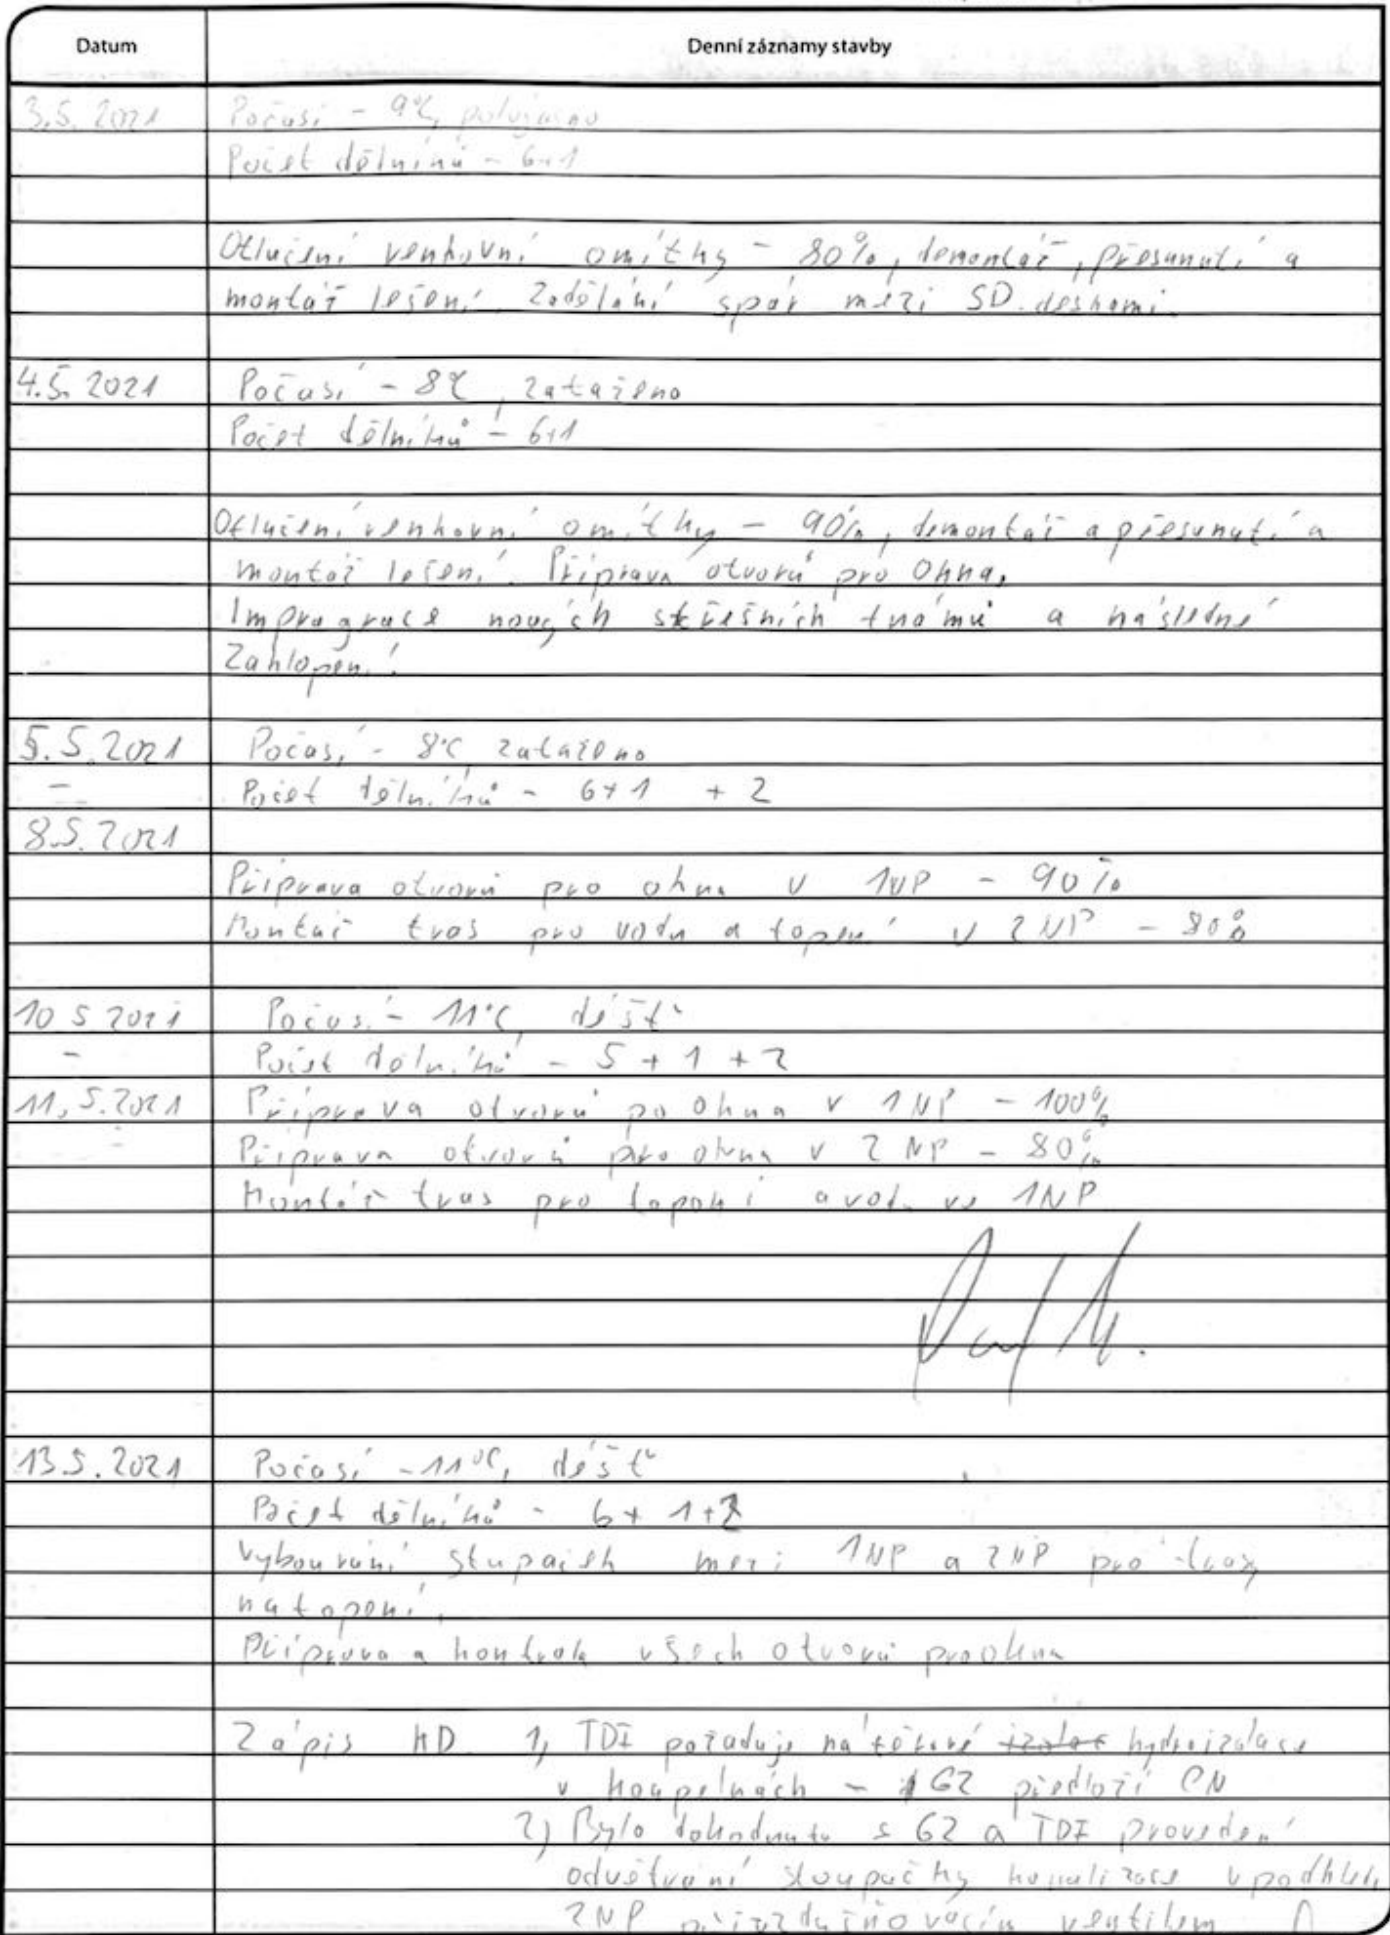 Datum Denní záznamy stavby
3.5. 2021 Počasí - 9°C, polojasno
Počet dělníků - 6+1
Otlučení venkovní omítky - 80%, demontáž, přesunutí a
montáž lešení. Zadělání spár mezi SD deskami.
4.5. 2021 Počasí - 8°C, zataženo
Počet dělníků - 6+1
Otlučení venkovní omítky - 90%, demontáž a přesunutí a
montáž lešení. Příprava otvorů pro okna.
Impragrace nových střešních trámů a následné
Zaklopení.
5.5.2021 Počasí - 8°C zataženo
- Počet dělníků - 6+1 + 2
8.5.2021
Příprava otvorů pro okna v 1NP - 90%
Montáž tras pro vodu a topení v 2NP - 80%
10 5 2021 Počasí - 11°C, déšť
- Počet dělníků - 5 + 1 + 2
11.5.2021 Příprava otvorů po okna v 1NP - 100%
Příprava otvorů pro okna v 2NP - 80%
Montáž tras pro topení a vodu v 1NP
13.5.2021 Počasí - 11°C, déšť
Počet dělníků - 6+ 1+2
Vybourání stupaček mezi 1NP a 2NP pro trasy
na topení.
Příprava a kontrola všech otvorů pro okna
Zápis KD 1, TDI požaduje nátěrové hydroizolace
v koupelnách - GZ předloží CN
2) Bylo dohodnuto s GZ a TDI provedení
odvětrání stoupačky kanalizace v podhledu
2NP přivzdušňovacím ventilem